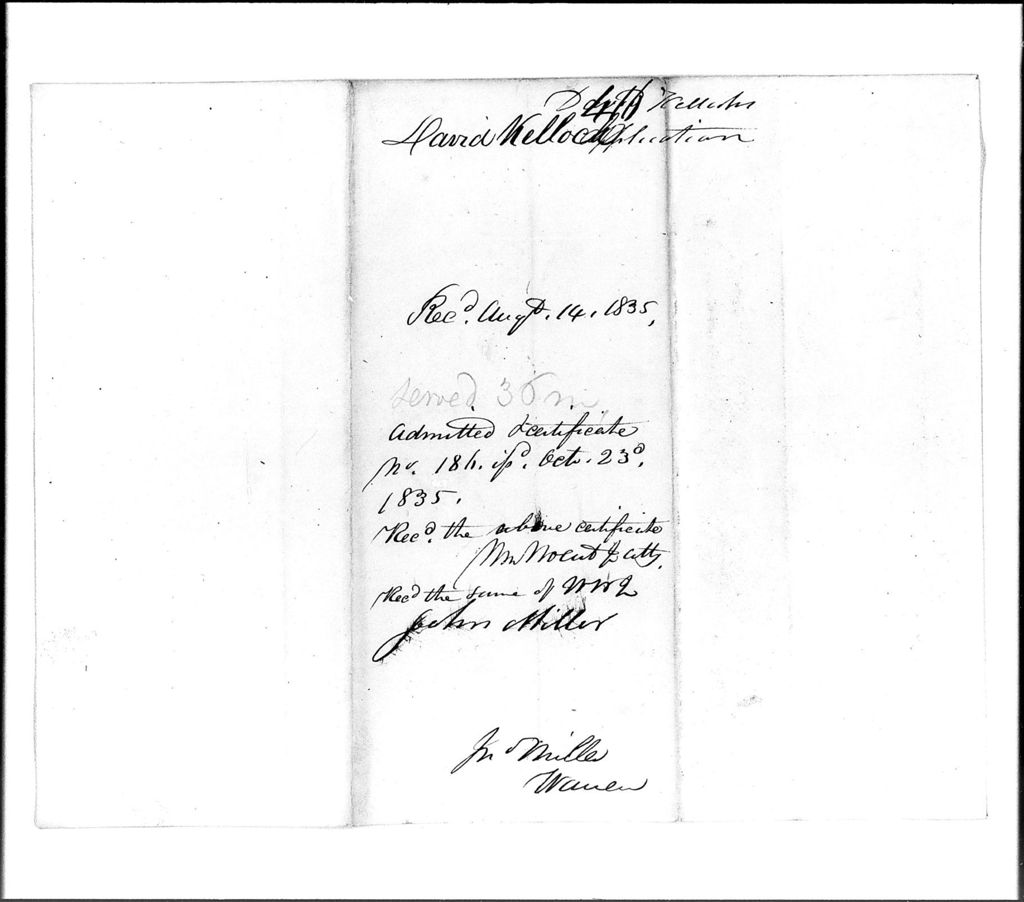 David Kelloch
application
Recd. Augt. 14. 1835,
Served 36 m
Admitted & certificate
No. 186. isd. Oct. 23d.
1835.
Recd. the above certificate
Atty.
Recd the same of
John Miller
Jno Miller
Warren